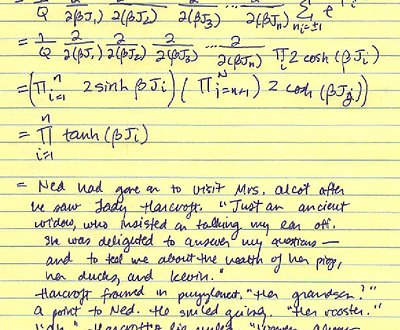 = 1/Q 2/2(βJ1) 2/2(βJ2) 2/2(βJ3) ... 2/2(βJn) Σ ni=±1 e
= 1/Q 2/2(βJ1) 2/2(βJ2) 2/2(βJ3) ... 2/2(βJn) Πi 2 cosh (βJi)
= (Π i=1 n 2 sinh βJi) (Π j=n+1 N 2 cosh (βJj))
= Π i=1 n tanh (βJi)
= Ned had gone on to visit Mrs. Alcot after
he saw Lady Harcroft. "Just an ancient
widow, who insisted on talking my ear off.
She was delighted to answer my questions —
and to tell me about the health of her pigs,
her ducks, and Kevin."
Harcroft frowned in puzzlement. "Her grandson?"
a point to Ned. He smiled going. "Her rooster."